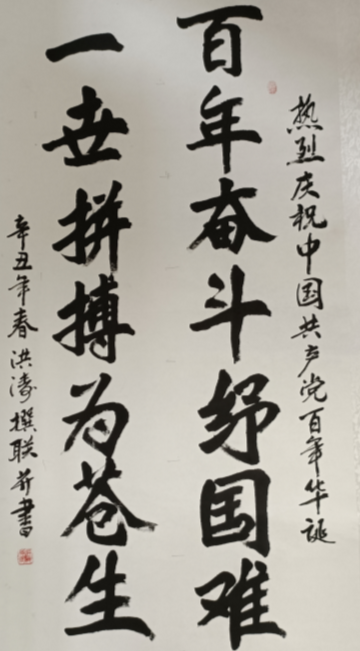 热烈庆祝中国共产党百年华诞
百年奋斗纾国难
一世拼搏为苍生
辛丑年春洪涛撰联并书